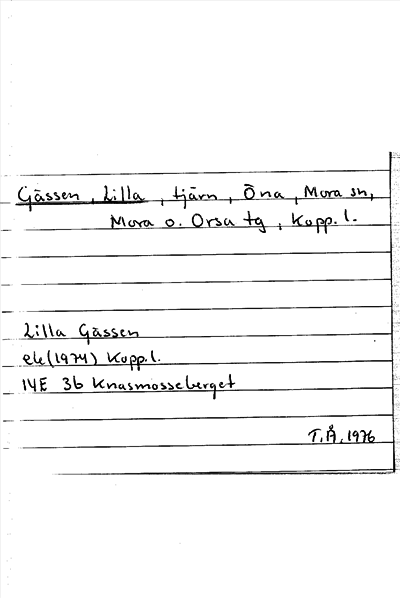 Gässen, Lilla, tjärn, Öna, Mora sn,
Mora o. Orsa tg, Kopp. l.
Lilla Gässen
ek(1974) Kopp.l.
14E 3b Knasmosseberget
T.Å. 1976